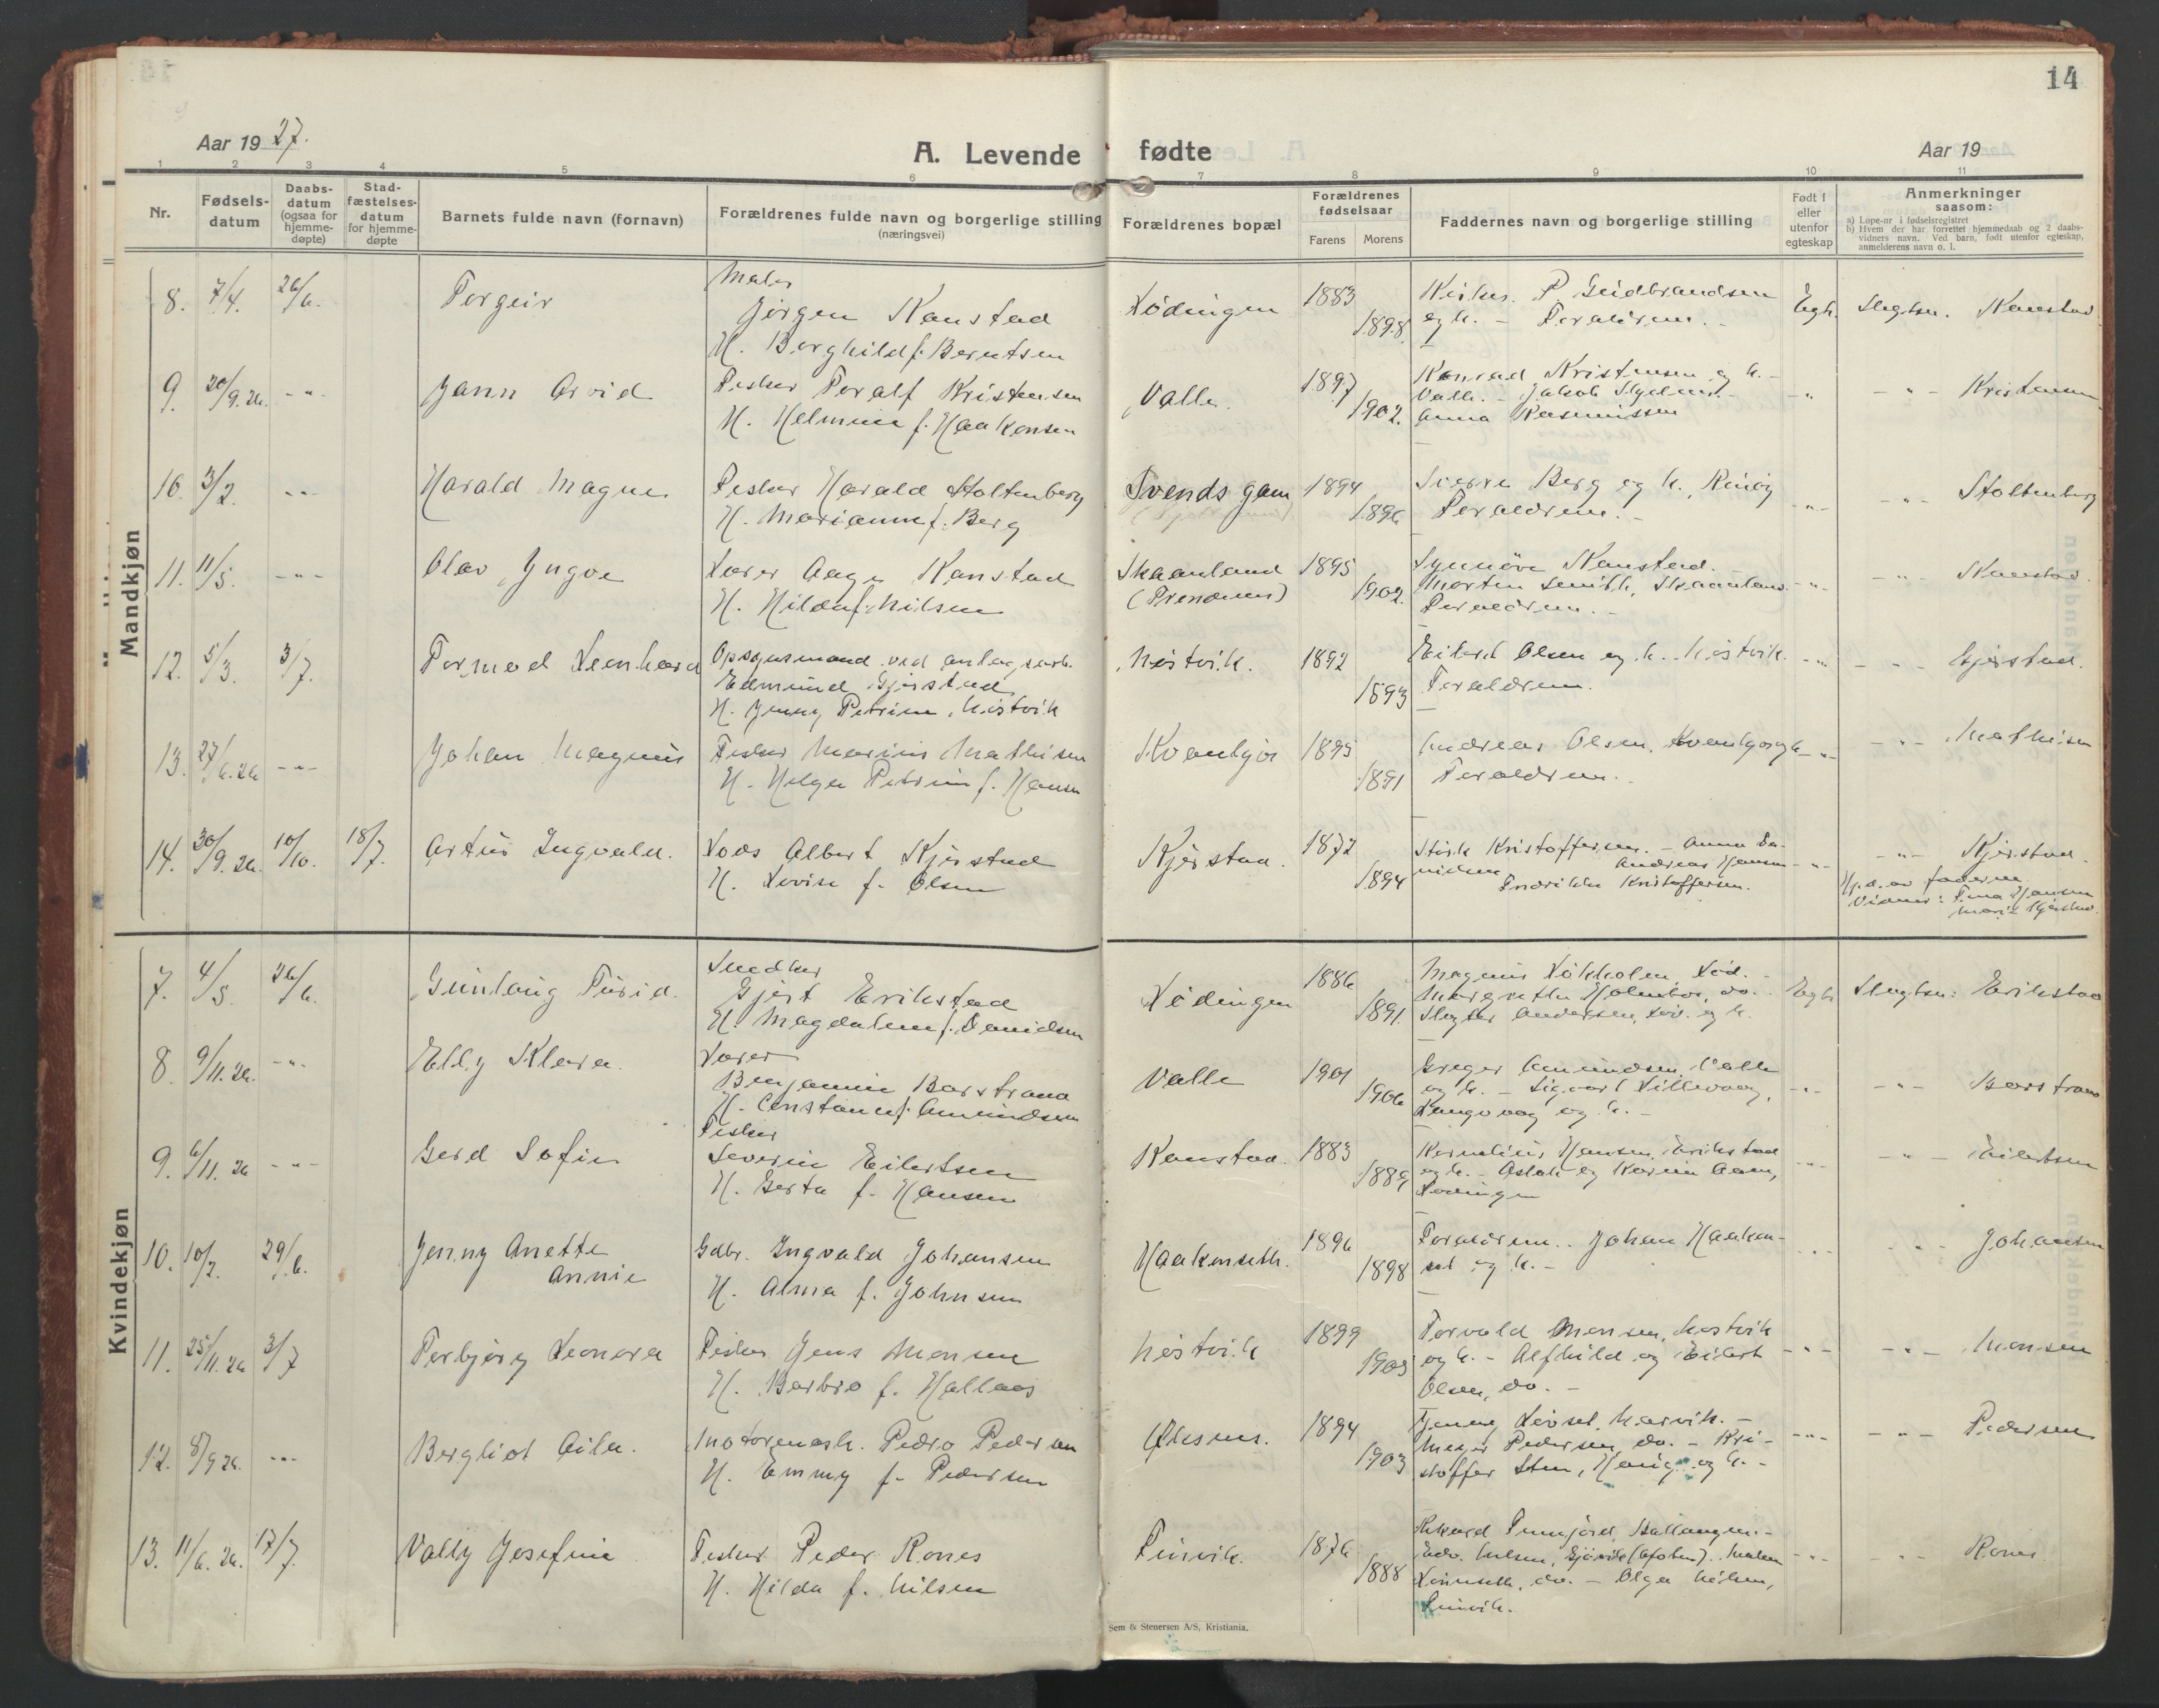 14
Aar 1927.
A. Levende fødte
Aar 19
1 2 3 4 5 6 7 8 9 10 11
Nr.
Fødsels-
datum
Daabs-
datum
(ogsaa for
hjemme-
døpte)
Stad-
fæstelses-
datum
for hjemme-
døpte
Barnets fulde navn (fornavn)
Forældrenes fulde navn og borgerlige stilling
(næringsvei)
Forældrenes bopæl
Forældrenes
fødselsaar
Farens Morens
Faddernes navn og borgerlige stilling
Født i
eller
utenfor
egteskap
Anmerkninger
saasom:
a) Løpe-nr i fødselsregistret
b) Hvem der har forrettet hjemmedaab og 2 daabs-
vidners navn. Ved barn, født utenfor egteskap,
anmelderens navn o. l.
Mandkjøn
8. 7/4. 26/6. Torgeir
Maler
Jørgen Kanstad
H. Borghild f. Berntsen
Lødingen 1883 1898.
P. Guldbrandsen
og h. - Forældrene. -
Egt. Slegtsn. Kanstad
9. 20/9.26. -"- Jann Arvid
Fisker Toralf Kristensen
H. Helmine f. Haakonsen
Valle. 1897 1902.
Konrad Kristensen og h. -
Valle. - Jakob
Anna Rasmussen
-"- -"- Kristensen
10. 3/2. -"- Harald Magne
Fisker Harald Stoltenberg
H. Marianne f. Berg
Svendsgam 1894 1896
Sverre Berg og h., Rinøy
Forældrene. -
-"- -"- Stoltenberg
11. 11/5. -"- Olav Yngve
Lærer Aage Kanstad
H. Hilda f. Nilsen
Skaanland
1895 1902.
Synnøve Kanstad. -
Morten Smith, Skaanland
Forældrene. -
-"- -"- Kanstad.
12. 5/3. 3/7. Tormod Leonhard
Opsynsmand ved anlægsarb.
Edmund Gjerstad
H. Jenny Petrine, Nestvik
Nestvik. 1892 1893
Eilert Olsen og h. Nestvik.
Forældrene.
-"- -"- Gjerstad.
13. 27/6.26 -"- Johan Magnus
Fisker Marius Mathisen
H. Helga Petrine f. Hansen
Kvantgjor 1895 1891
Andreas Olsen, Kvantgjor og h.
Forældrene.
-"- -"- Mathisen
14. 30/9.26. 10/10. 18/7. Artur Ingvald.
Lods Albert Kjerstad
H. Lovise f. Olsen
Kjerstad. 1872 1894
Kristoffersen. - Anna Da-
nielsen Andreas Hansen
Fredrikke Kristoffersen.
-"- -"- Kjerstad.
Hj.d. av faderen
Vidner: Tina Hansen
Marie Kjerstad.
Kvindekjøn
7. 4/5. 26/6. Gunlaug Turid.
Snedker
Gjert Erikstad
H. Magdalene f. Danielsen
Lødingen 1886 1891.
Magnus Løkholm, Lød. -
Margrethe Holmboe, do. -
Andersen, Lød. og h.
Egt. Slegtsn: Erikstad
8. 9/11.26. -"- Elly Klara.
Lærer
Benjamin Barstrand
H. Constance f. Amundsen
Valle 1901 1906
Greger Amundsen, Valle
og h. - Sigvart Lillevaag,
og h. -
-"- -"- Barstrand
9. 6/11.26 -"- Gerd Sofie
Fisker
Severin Eilertsen
H. Gerta f. Hansen
Kanstad. 1883 1889
Kornelius Hansen, Erikstad
og h. - Aslak og Karine Aam,
Lødingen
-"- -"- Eilertsen
10. 10/2. 29/6. Jenny Anette
Annie
Gdbr. Ingvald Johansen
H. Alma f. Johnsen
Haakenseth. 1896 1898
Forældrene. - Johan Haaken-
set og h. -
-"- -"- Johansen
11. 25/11.26 3/7 Torbjørg Leonora
Fisker Jens Monsen
H. Barbro f. Hallaas
Nestvik 1899 1903
Torvald Monsen, Nestvik
og h. - Alfhild og Eilert
Olsen, do. -
-"- -"- Monsen
12. 8/9.26. -"- Bergliot Aila.
Motorenask. Pedro Pedersen
H. Emmy f. Pedersen
1894 1903
Narvik. -
Pedersen, do. - Kri-
stoffer Sten, og h. -
-"- -"- Pedersen
13. 11/6.26. 17/7. Vally Josefine
Fisker Peder Rones
H. Hilda f. Nilsen
Finvik. 1876 1888
Rikard Ballangen. -
Edv. Nilsen, Gjøvik (Ofoten).
do. - Olga Nilsen,
Finvik.
-"- -"- Rones
Sem & Stenersen A/S, Kristiania.